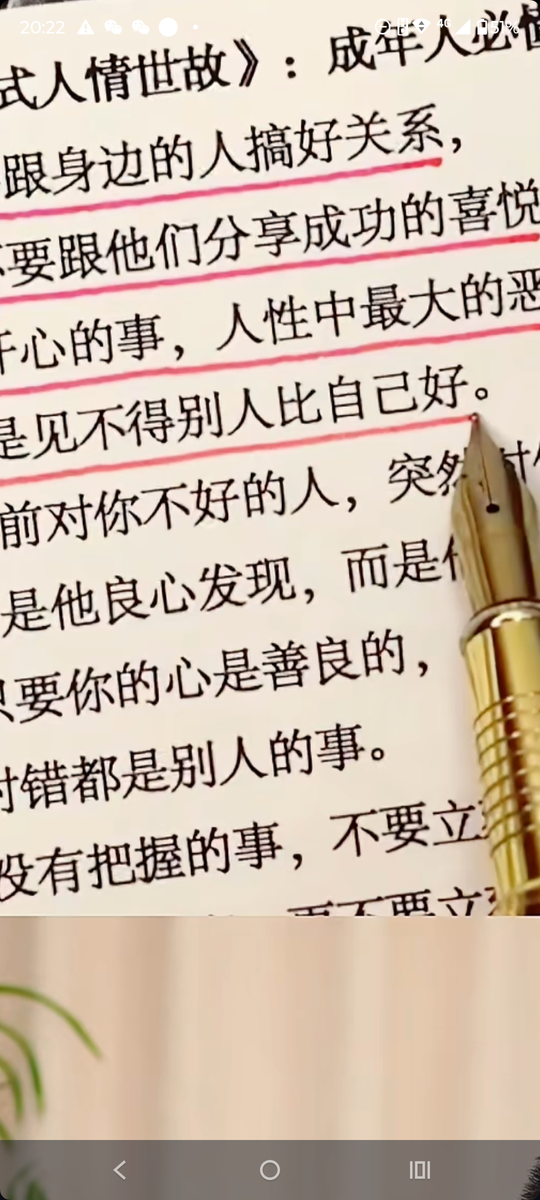 20:22
4G
51%
式人情世故》：成年人必
跟身边的人搞好关系，
要跟他们分享成功的喜悦
心的事，人性中最大的恶
是见不得别人比自己好。
前对你不好的人，突然
是他良心发现，而是
只要你的心是善良的，
对错都是别人的事。
没有把握的事，不要立
更不要立